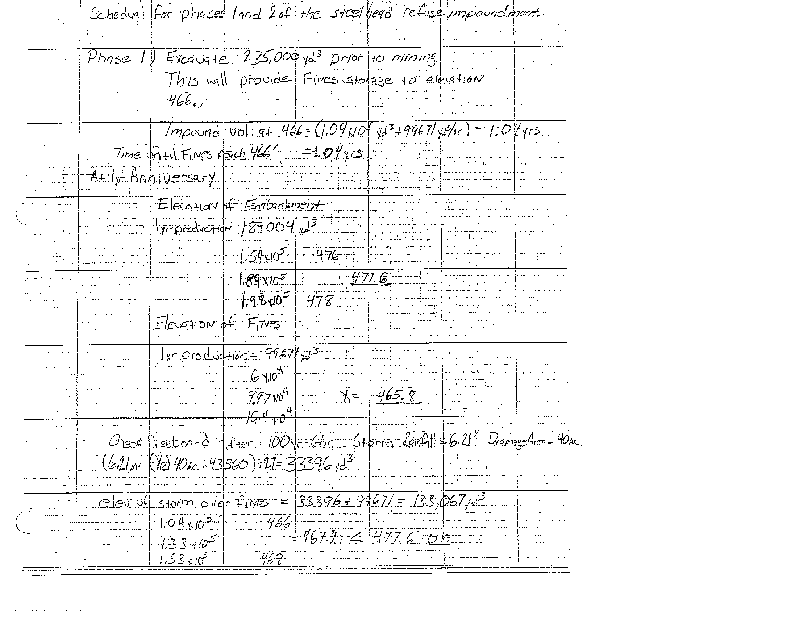 Schedual for phases 1 and 2 of the steelhead refuse impoundment.
Phase 1) Excavate 275,000 yd³ prior to mining
This will provide Fines storage to elevation
466.
Impound vol. at 466 = (1.04x10⁵ yd³ ÷ 99671 yd³/yr) = 1.04 yrs.
Time until Fines reach 466' = 1.04 yrs.
At 1yr Anniversary
Elevation of Embankment
1yr production 189004 yd³
1.54x10⁵ 476
1.89x10⁵ 477.6
1.98x10⁵ 478
Elevation of Fines
1yr production = 99671 yd³
6x10⁴
9.97x10⁴ X = 465.8
10.4x10⁴
100 yr 6hr Storm Rainfall = 6.21" Drainage Area = 40ac.
40ac 43560 = 33396 yd³
elev of storm over fines = 33396 + 99671 = 133,067 yd³
1.04x10⁵ 466
1.33x10⁵ 467.4 < 477.6 OK
1.53x10⁵ 468